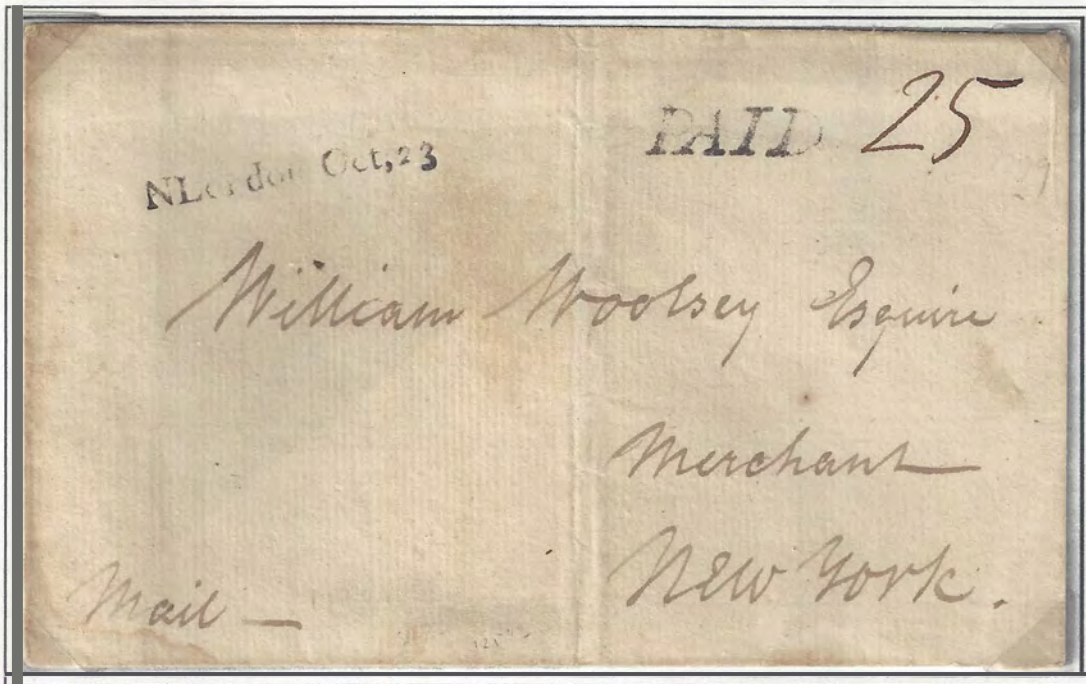 PAID 25
NLondon Oct, 23
William Woolsey Esquire
Merchant
New York.
Mail —